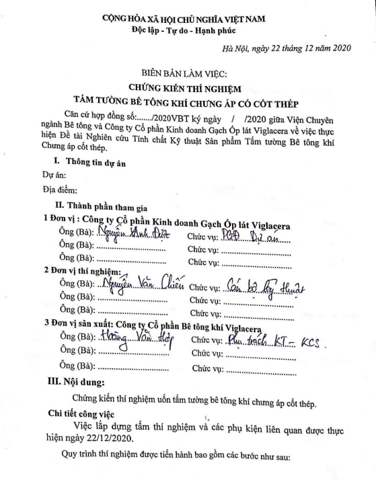 CỘNG HÒA XÃ HỘI CHỦ NGHĨA VIỆT NAM
Độc lập - Tự do - Hạnh phúc
Hà Nội, ngày 22 tháng 12 năm 2020
BIÊN BẢN LÀM VIỆC:
CHỨNG KIẾN THÍ NGHIỆM
TẤM TƯỜNG BÊ TÔNG KHÍ CHƯNG ÁP CÓ CỐT THÉP
Căn cứ hợp đồng số:....../2020VBT ký ngày / /2020 giữa Viện Chuyên
ngành Bê tông và Công ty Cổ phần Kinh doanh Gạch Ốp lát Viglacera về việc thực
hiện Đề tài Nghiên cứu Tính chất Kỹ thuật Sản phẩm Tấm tường Bê tông khí
Chưng áp cốt thép.
I. Thông tin dự án
Dự án:
Địa điểm:
II. Thành phần tham gia
1 Đơn vị : Công ty Cổ Phần Kinh doanh Gạch Ốp lát Viglacera
Ông (Bà): Nguyễn Anh Đức Chức vụ: PGĐ Dự án
Ông (Bà): Chức vụ:
Ông (Bà): Chức vụ:
2 Đơn vị thí nghiệm:
Ông (Bà): Nguyễn Văn Chiến Chức vụ: Cán bộ kỹ thuật
Ông (Bà): Chức vụ:
Ông (Bà): Chức vụ:
3 Đơn vị sản xuất: Công ty Cổ Phần Bê tông khí Viglacera
Ông (Bà): Hoàng Văn Chức vụ: Phụ trách KT - KCS
Ông (Bà): Chức vụ:
Ông (Bà): Chức vụ:
III. Nội dung:
Chứng kiến thí nghiệm uốn tấm tường bê tông khí chưng áp cốt thép.
Chi tiết công việc
Việc lắp dựng tấm thí nghiệm và các phụ kiện liên quan được thực
hiện ngày 22/12/2020.
Quy trình thí nghiệm được tiến hành bao gồm các bước như sau: